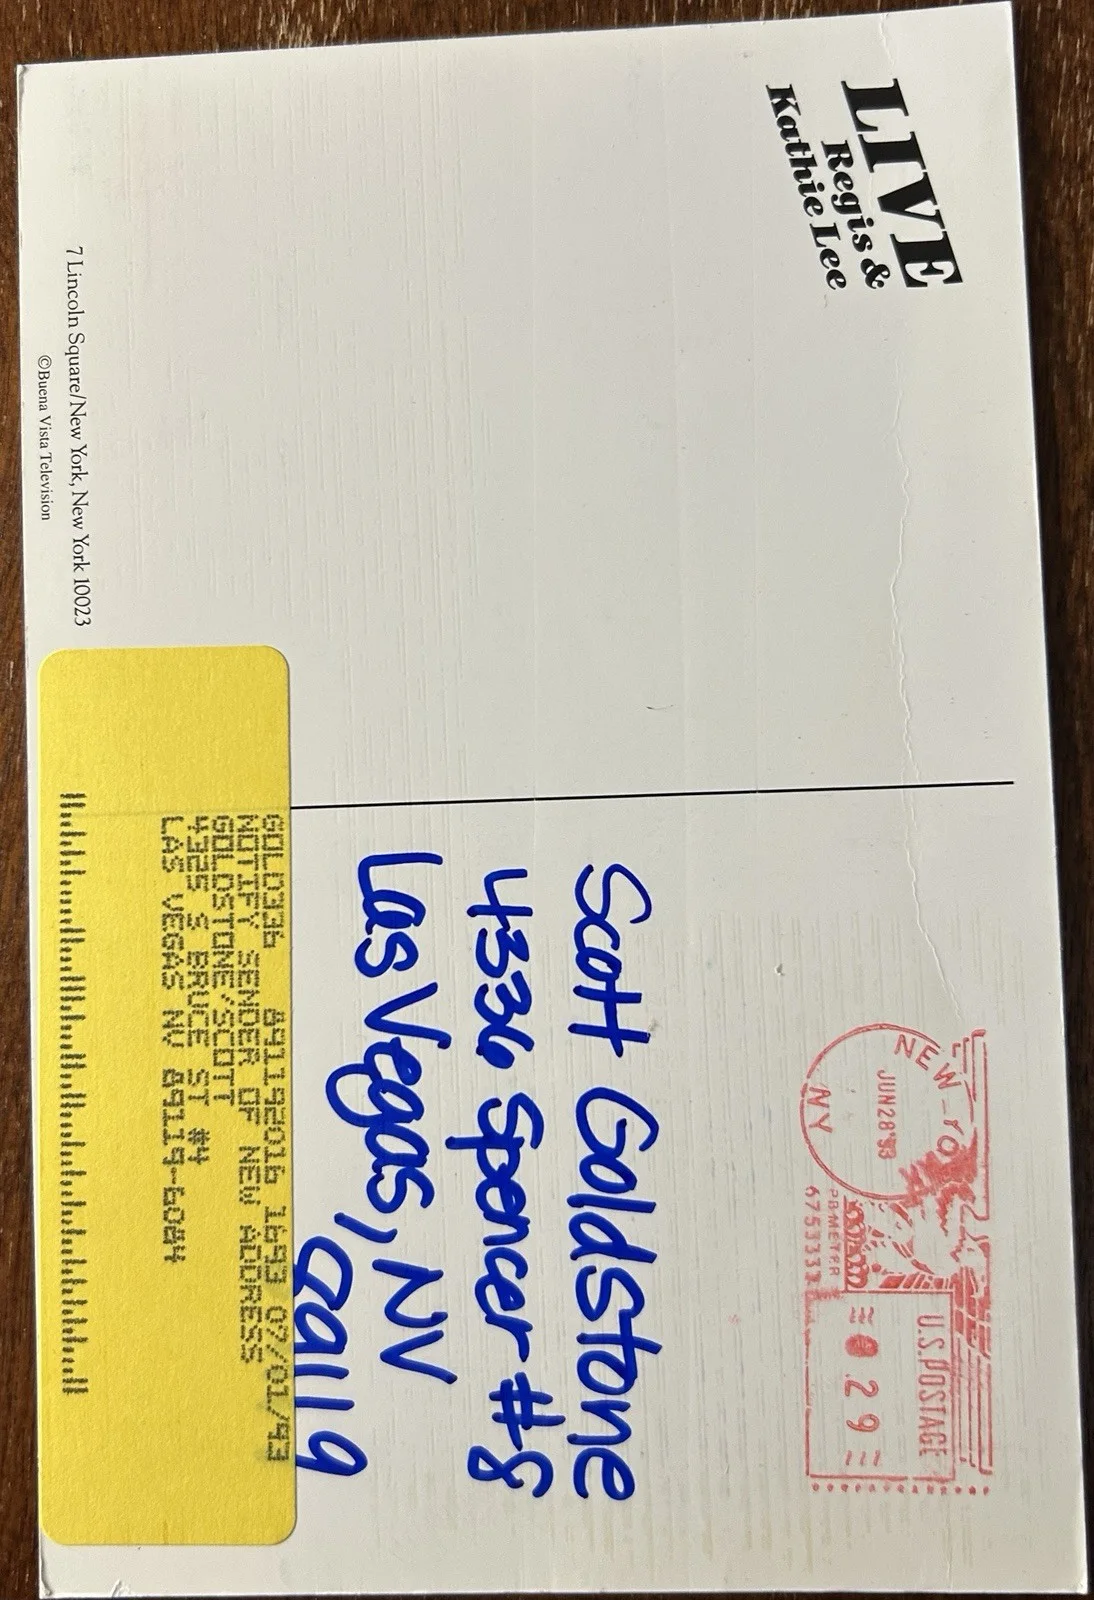 LIVE
Regis &
Kathie Lee
7 Lincoln Square/New York, New York 10023
©Buena Vista Television
NEW YO
JUN 28 '93
NY
PB METER
6753331
U.S. POSTAGE
.29
Scott Goldstone
4336 Spencer #8
Las Vegas, NV
89119
GOLD336 891192016 1693 07/01/93
NOTIFY SENDER OF NEW ADDRESS
GOLDSTONE/SCOTT
4325 S BRUCE ST #4
LAS VEGAS NV 89119-6084